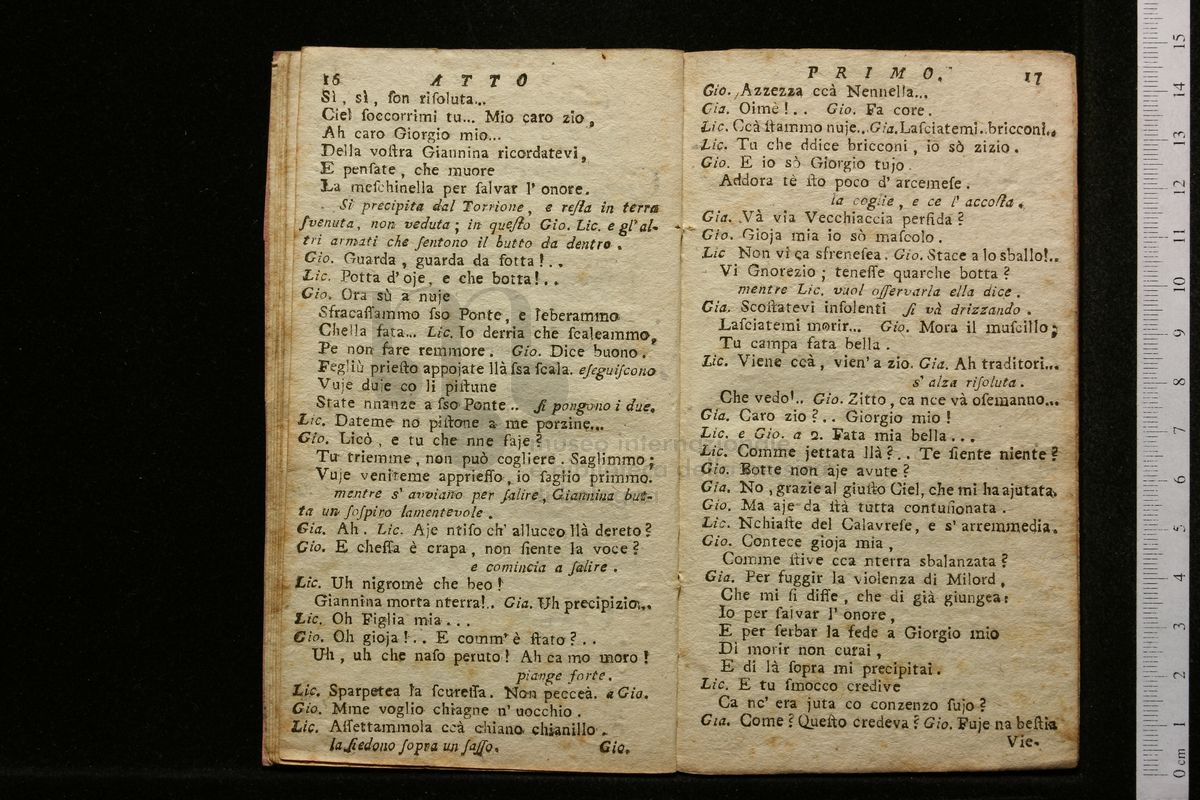 16 ATTO
Sì, sì, ſon riſoluta...
Ciel ſoccorrimi tu... Mio caro zio,
Ah caro Giorgio mio...
Della voſtra Giannina ricordatevi,
E penſate, che muore
La meſchinella per ſalvar l' onore.
Si precipita dal Torrione, e reſta in terra
ſvenuta, non veduta; in queſto Gio. Lic. e gl'al-
tri armati che ſentono il butto da dentro.
Gio. Guarda, guarda da ſotta!..
Lic. Potta d'oje, e che botta!..
Gio. Ora sù a nuje
Sfracaſſammo ſso Ponte, e leberammo
Chella fata... Lic. Io derria che ſcaleammo,
Pe non fare remmore. Gio. Dice buono.
Fegliù prieſto appojate llà ſsa ſcala. eſeguiſcono
Vuje duje co li piſtune
State nnanze a ſso Ponte.. ſi pongono i due.
Lic. Dateme no piſtone a me porzine...
Gio. Licò, e tu che nne faje?
Tu triemme, non può cogliere. Saglimmo;
Vuje veniteme apprieſſo, io ſaglio primmo.
mentre s' avviano per ſalire, Giannina but-
ta un ſoſpiro lamentevole.
Gia. Ah. Lic. Aje ntiſo ch' allucco llà dereto?
Gio. E cheſſa è crapa, non ſiente la voce?
e comincia a ſalire.
Lic. Uh nigromè che beo!
Giannina morta nterra!.. Gia. Uh precipizio...
Lic. Oh Figlia mia...
Gio. Oh gioja!.. E comm' è ſtato?..
Uh, uh che naſo peruto! Ah ca mo moro!
piange forte.
Lic. Sparpetea la ſcureſſa. Non pecceà. a Gio.
Gio. Mme voglio chiagne n' uocchio.
Lic. Aſſettammola ccà chiano chianillo.
la ſiedono ſopra un ſaſſo. Gio.
PRIMO. 17
Gio. Azzezza ccà Nennella...
Gia. Oimè!.. Gio. Fa core.
Lic. Ccà ſtammo nuje.. Gia. Laſciatemi.. bricconi..
Lic. Tu che ddice bricconi, io sò zizio.
Gio. E io sò Giorgio tujo.
Addora tè ſto poco d' arcemeſe.
la coglie, e ce l' accoſta.
Gia. Và via Vecchiaccia perfida?
Gio. Gioja mia io sò maſcolo.
Lic Non vi ca sfreneſea. Gio. Stace a lo sballo!..
Vi Gnorezio; teneſſe quarche botta?
mentre Lic. vuol oſſervarla ella dice.
Gia. Scoſtatevi inſolenti ſi và drizzando.
Laſciatemi morir... Gio. Mora il muſcillo;
Tu campa fata bella.
Lic. Viene ccà, vien' a zio. Gia. Ah traditori...
s' alza riſoluta.
Che vedo!.. Gio. Zitto, ca nce và oſemanno...
Gia. Caro zio?.. Giorgio mio!
Lic. e Gio. a 2. Fata mia bella...
Lic. Comme jettata llà?.. Te ſiente niente?
Gio. Botte non aje avute?
Gia. No, grazie al giuſto Ciel, che mi ha ajutata.
Gio. Ma aje da ſtà tutta contuſionata.
Lic. Nchiaſte del Calavreſe, e s' arremmedia.
Gio. Contece gioja mia,
Comme ſtive cca nterra sbalanzata?
Gia. Per fuggir la violenza di Milord,
Che mi ſi diſſe, che di già giungea:
Io per ſalvar l' onore,
E per ſerbar la fede a Giorgio mio
Di morir non curai,
E di là ſopra mi precipitai.
Lic. E tu ſmocco credive
Ca nc' era juta co conzenzo ſujo?
Gia. Come? Queſto credeva? Gio. Fuje na beſtia
Vie-
museo internazionale